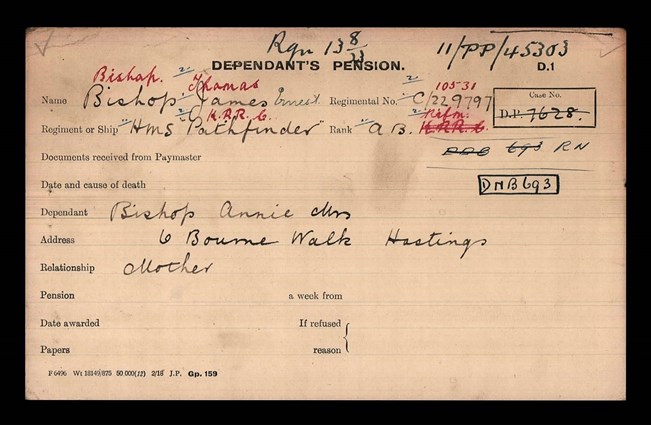 Rgn 13 8/33 11/PP/45303
DEPENDANT'S PENSION. D.1
Bishop. 2. Thomas 2. 10531
Name Bishop James Ernest Regimental No. C/229797 Case No.
K.R.R.C. Rifm. D.P. 7628.
Regiment or Ship "HMS Pathfinder" Rank A B. K.R.R.C.
Documents received from Paymaster 693 RN
Date and cause of death DNB 693
Dependant Bishop Annie Mrs
Address 6 Bourne Walk Hastings
Relationship Mother
Pension a week from
Date awarded If refused
Papers reason
F6496 Wt 18149/875 50,000(12) 2/18 J.P. Gp. 159